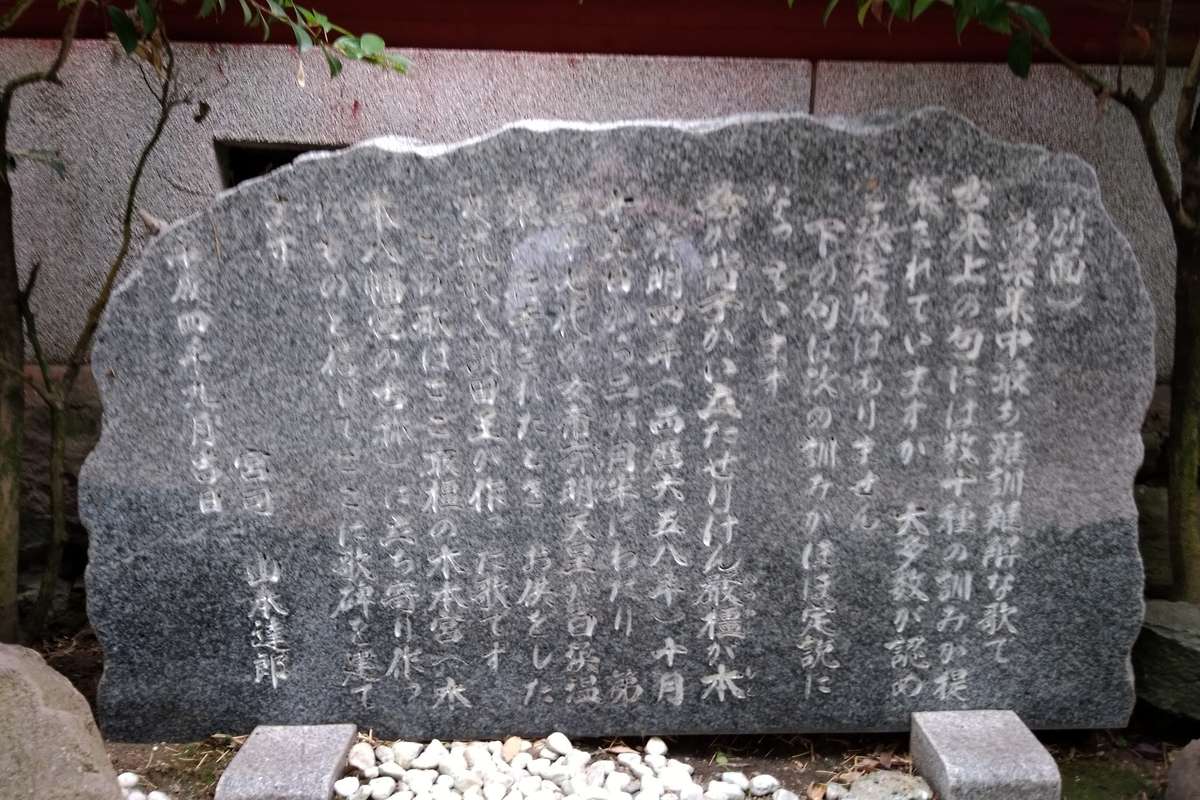 別面)
万葉集中最も難訓難解な歌で
古来上の句には数十種の訓みが提
案されていますが 大多数が認め
る決定版はありません
下の句は次の訓みがほぼ定説に
なっています
吾が背子がい立たせりけん厳橿が本
斉明四年(西暦六五八年)十月
十五日から 月 にわたり 第
三十七代の女帝斉明天皇が白浜温
泉に 幸されたとき お供をした
額田王が作った歌です
この歌はここ厳橿の木本宮(木
本八幡宮の古称)に立ち寄り作っ
たものと信じてここに歌碑を建て
ます
宮司 山本達郎
平成四年九月吉日